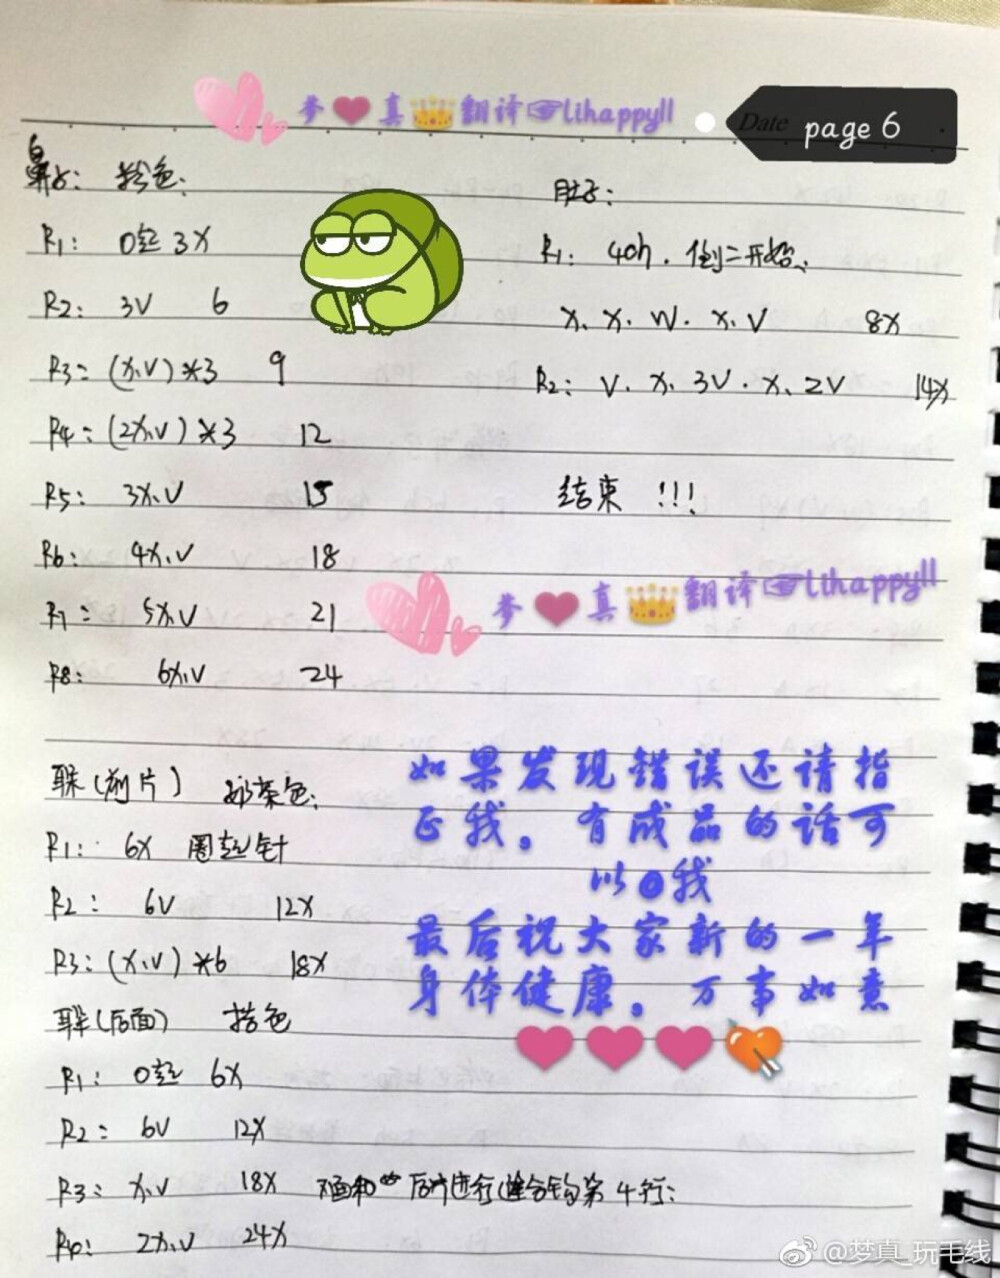 梦 真 翻译 lihappyll
Date page 6
鼻子: 粉色:
R1: O起 3X
R2: 3V 6
R3= (X,V)*3 9
R4=(2X,V)*3 12
R5: 3X,V 15
R6: 4X,V 18
R7: 5X,V 21
R8: 6X,V 24
肚子:
R1: 4ch. 倒二开始,
X. X. W. X. V 8X
R2: V. X. 3V. X. 2V 14X
结束 !!!
梦 真 翻译 lihappyll
耳朵(前片) 奶茶色:
R1: 6X 圈起针
R2: 6V 12X
R3: (X,V)*6 18X
(后面) 色
R1: O起 6X
R2= 6V 12X
R3= X,V 18X 后片进行缝合钩第4行:
R4: 2X,V 24X
如果发现错误还请指
正我。有成品的话可
以@我
最后祝大家新的一年
身体健康。万事如意
@梦真_玩毛线